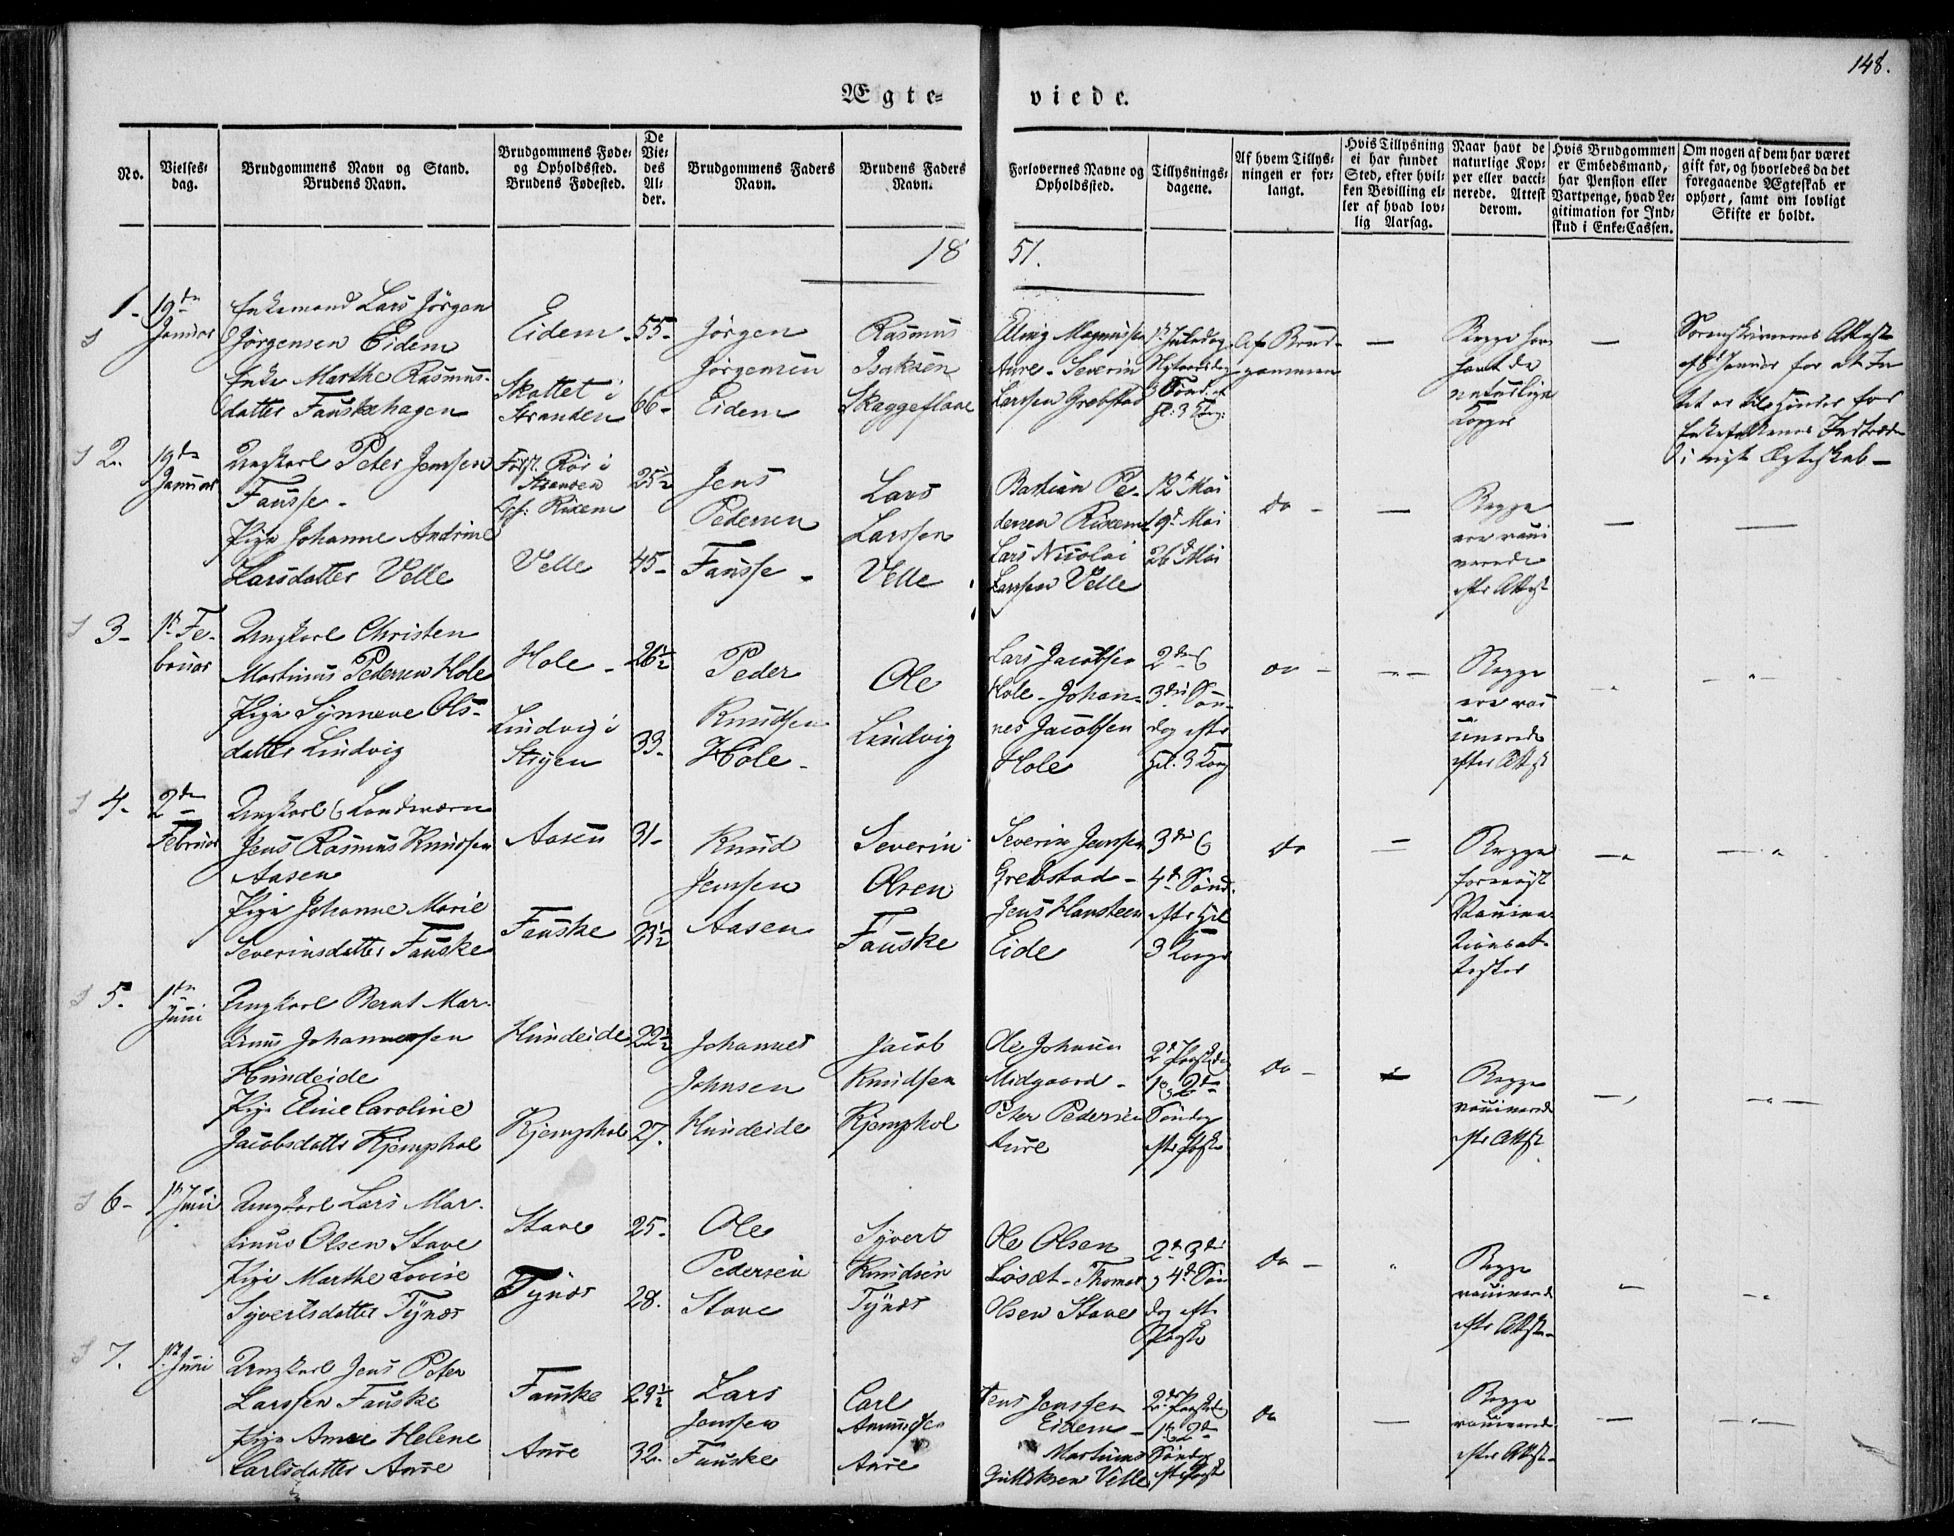 148.
Ægte-
viede.
No.
Vielses-
dag.
Brudgommens Navn og Stand.
Brudens Navn.
Brudgommens Føde-
og Opholdssted.
Brudens Fødested.
De
Vie-
des
Al-
der.
Brudgommens Faders
Navn.
Brudens Faders
Navn.
Forlovernes Navne og
Opholdssted.
Tillysnings-
dagene.
Af hvem Tillys-
ningen er for-
langt.
Hvis Tillysning
ei har fundet
Sted, efter hvil-
ken Bevilling el-
ler af hvad lov-
lig Aarsag.
Naar havt de
naturlige Kop-
per eller vacci-
nerede. Attest
derom.
Hvis Brudgommen
er Embedsmand,
har Pension eller
Vartpenge, hvad Le-
gitimation for Ind-
skud i Enke-Cassen.
Om nogen af dem har været
gift før, og hvorledes da det
foregaaende Ægteskab er
ophørt, samt om lovligt
Skifte er holdt.
18
51.
1-
19de
Januar
Enkemand Lars Jørgen
Jørgensen Eidem
Enke Marthe Rasmus-
datter Fauskehagen
Eidem
Skottet i
Stranden
55-
66-
Jørgen
Jørgensen
Eidem
Rasmus
Isaksen
Skaggeflaae
Elling Magnussen
Aure - Severin
Larssen Grebstad
1ste Juledag
Nytaarsdag
3 Sønd. ef
H: 3 Kong:
Af Brud-
gommen
—
Begge har
havt de
naturlige
Kopper
—
Sorenskriverens Attest
af 8de Januar for at In
tet er til Hinder for
Enkefolkenes Indtræde
i nyt Ægteskab -
2.
19de
Januar
Ungkarl Peter Jenssen
Fausse -
Pige Johanne Andrine
Larsdatter Velle
Født. Rør i
Stranden
Rixem
Velle
25½
45-
Jens
Pedersen
Fausse -
Lars
Larssen
Velle
Bastian Pe-
dersen Rixem
Lars Nicolai
Larssen Velle
12te Mai
19de Mai
26de Mai
do -
—
Begge
ere vaci
nerede
efter Attest
—
—
3-
1ste Fe-
bruar
Ungkarl Christen
Martinus Pedersen Hole
Pige Synneve Ols-
datter Lindvig
Hole -
Lindvig i
Stryen
26½
33-
Peder
Knudsen
Hole -
Ole
Lindvig
Lars Jacobsen
Hole - Johan-
nes Jacobsen
Hole
2den &
3die Søn-
dag efter
Hel. 3 Kong
do -
- -
Begge
ere vac
cinerede
efter Attest
-
- " -
4-
2den
Februar
Ungkarl & Landværn
Jens Rasmus Knudsen
Aasen
Pige Johanne Marie
Severinsdatter Fauske
Aasen
Fauske
31-
23½
Knud
Jenssen
Aasen
Severin
Olsen
Fauske
Severin Jenssen
Grebstad -
Jens Hansteen
Eide
3die &
4de Sønd.
efter Hel
3 Konge
do
—
Begge
foreviist
Vaccina-
tionsat-
tester
—"
— "
5.
1ste
Juni
Ungkarl Bernt Mar-
tinus Johannessen
Hundeide
Pige Eline Caroline
Jacobsdatter Kjemphol
Hundeide
Kjemphol
22½
27.
Johannes
Johnsen
Hundeide
Jacob
Knudsen
Kjemphol
Ole Johnsen
Midgaard -
Peter Pedersen
Aure
2den Paaskedag
1 & 2den
Søndag
efter Paaske
do -
-
Begge
vacinerede
efter Attest
—,
- " -
6-
1ste Juni
Ungkarl Lars Mar-
tinus Olsen Stave
Pige Marthe Lovise
Syvertsdatter Tynæs
Stave
Tynæs
25-
28.
Ole
Pedersen
Stave
Syvert
Knudsen
Tynæs
Ole Olsen
Løsæt - Thomas
Olsen Stave
2den 3die
& 4de Søn
dag efter
Paaske
do -
"
Begge
vacinerede
efter Attest-
-
- "
7.
1ste Juni
Ungkarl Jens Peter
Larssen Fauske
Pige Anne Helene
Carlsdatter Aure
Fauske
Aure
29½
32-
Lars
Jenssen
Fauske
Carl
Amundsen
Aure
Jens Jenssen
Eidem -
Martinus
Gulliksen Velle
2den Paaskedag
1 & 2den
Søndag
efter Paaske
do
—
Begge
vacinerede
efter Attest-
—
- " -